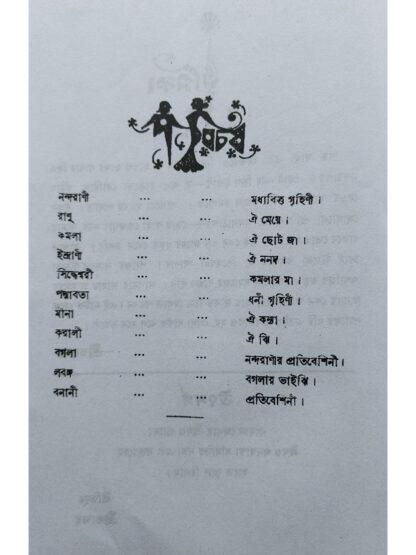 পরিচয়
নন্দরাণী ... ... মধ্যবিত্ত গৃহিণী।
রাণু ... ... ঐ মেয়ে।
কমলা ... ... ঐ ছোট জা।
ইন্দ্রাণী ... ... ঐ ননদ।
সিদ্ধেশ্বরী ... ... কমলার মা।
পদ্মাবতী ... ... ধনী গৃহিণী।
মীনা ... ... ঐ কন্যা।
করালী ... ... ঐ ঝি।
বগলা ... ... নন্দরাণীর প্রতিবেশিনী।
লবঙ্গ ... ... বগলার ভাইঝি।
বনানী ... ... প্রতিবেশিনী।